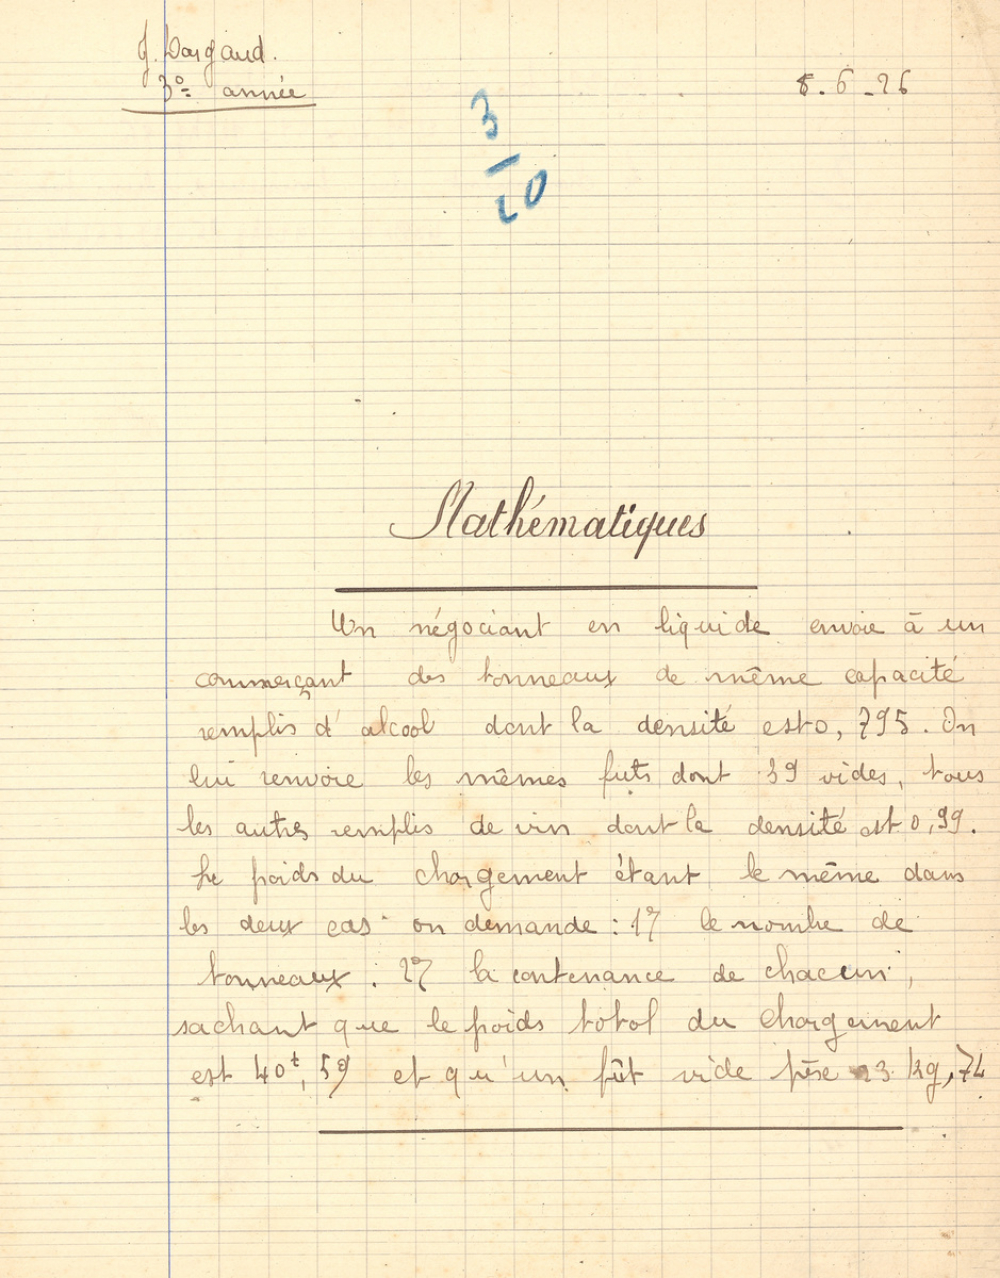 J. Dargaud.
3º année
8.6-26
3
10
Mathématiques
Un négociant en liquide envoie à un
commerçant des tonneaux de même capacité
remplis d'alcool dont la densité est 0,795. On
lui renvoie les mêmes futs dont 39 vides, tous
les autres remplis de vin dont la densité est 0,99.
Le poids du chargement étant le même dans
les deux cas on demande : 1º) le nombre de
tonneaux : 2º) la contenance de chacun,
sachant que le poids total du chargement
est 40t,59 et qu'un fût vide pèse 23 kg,74